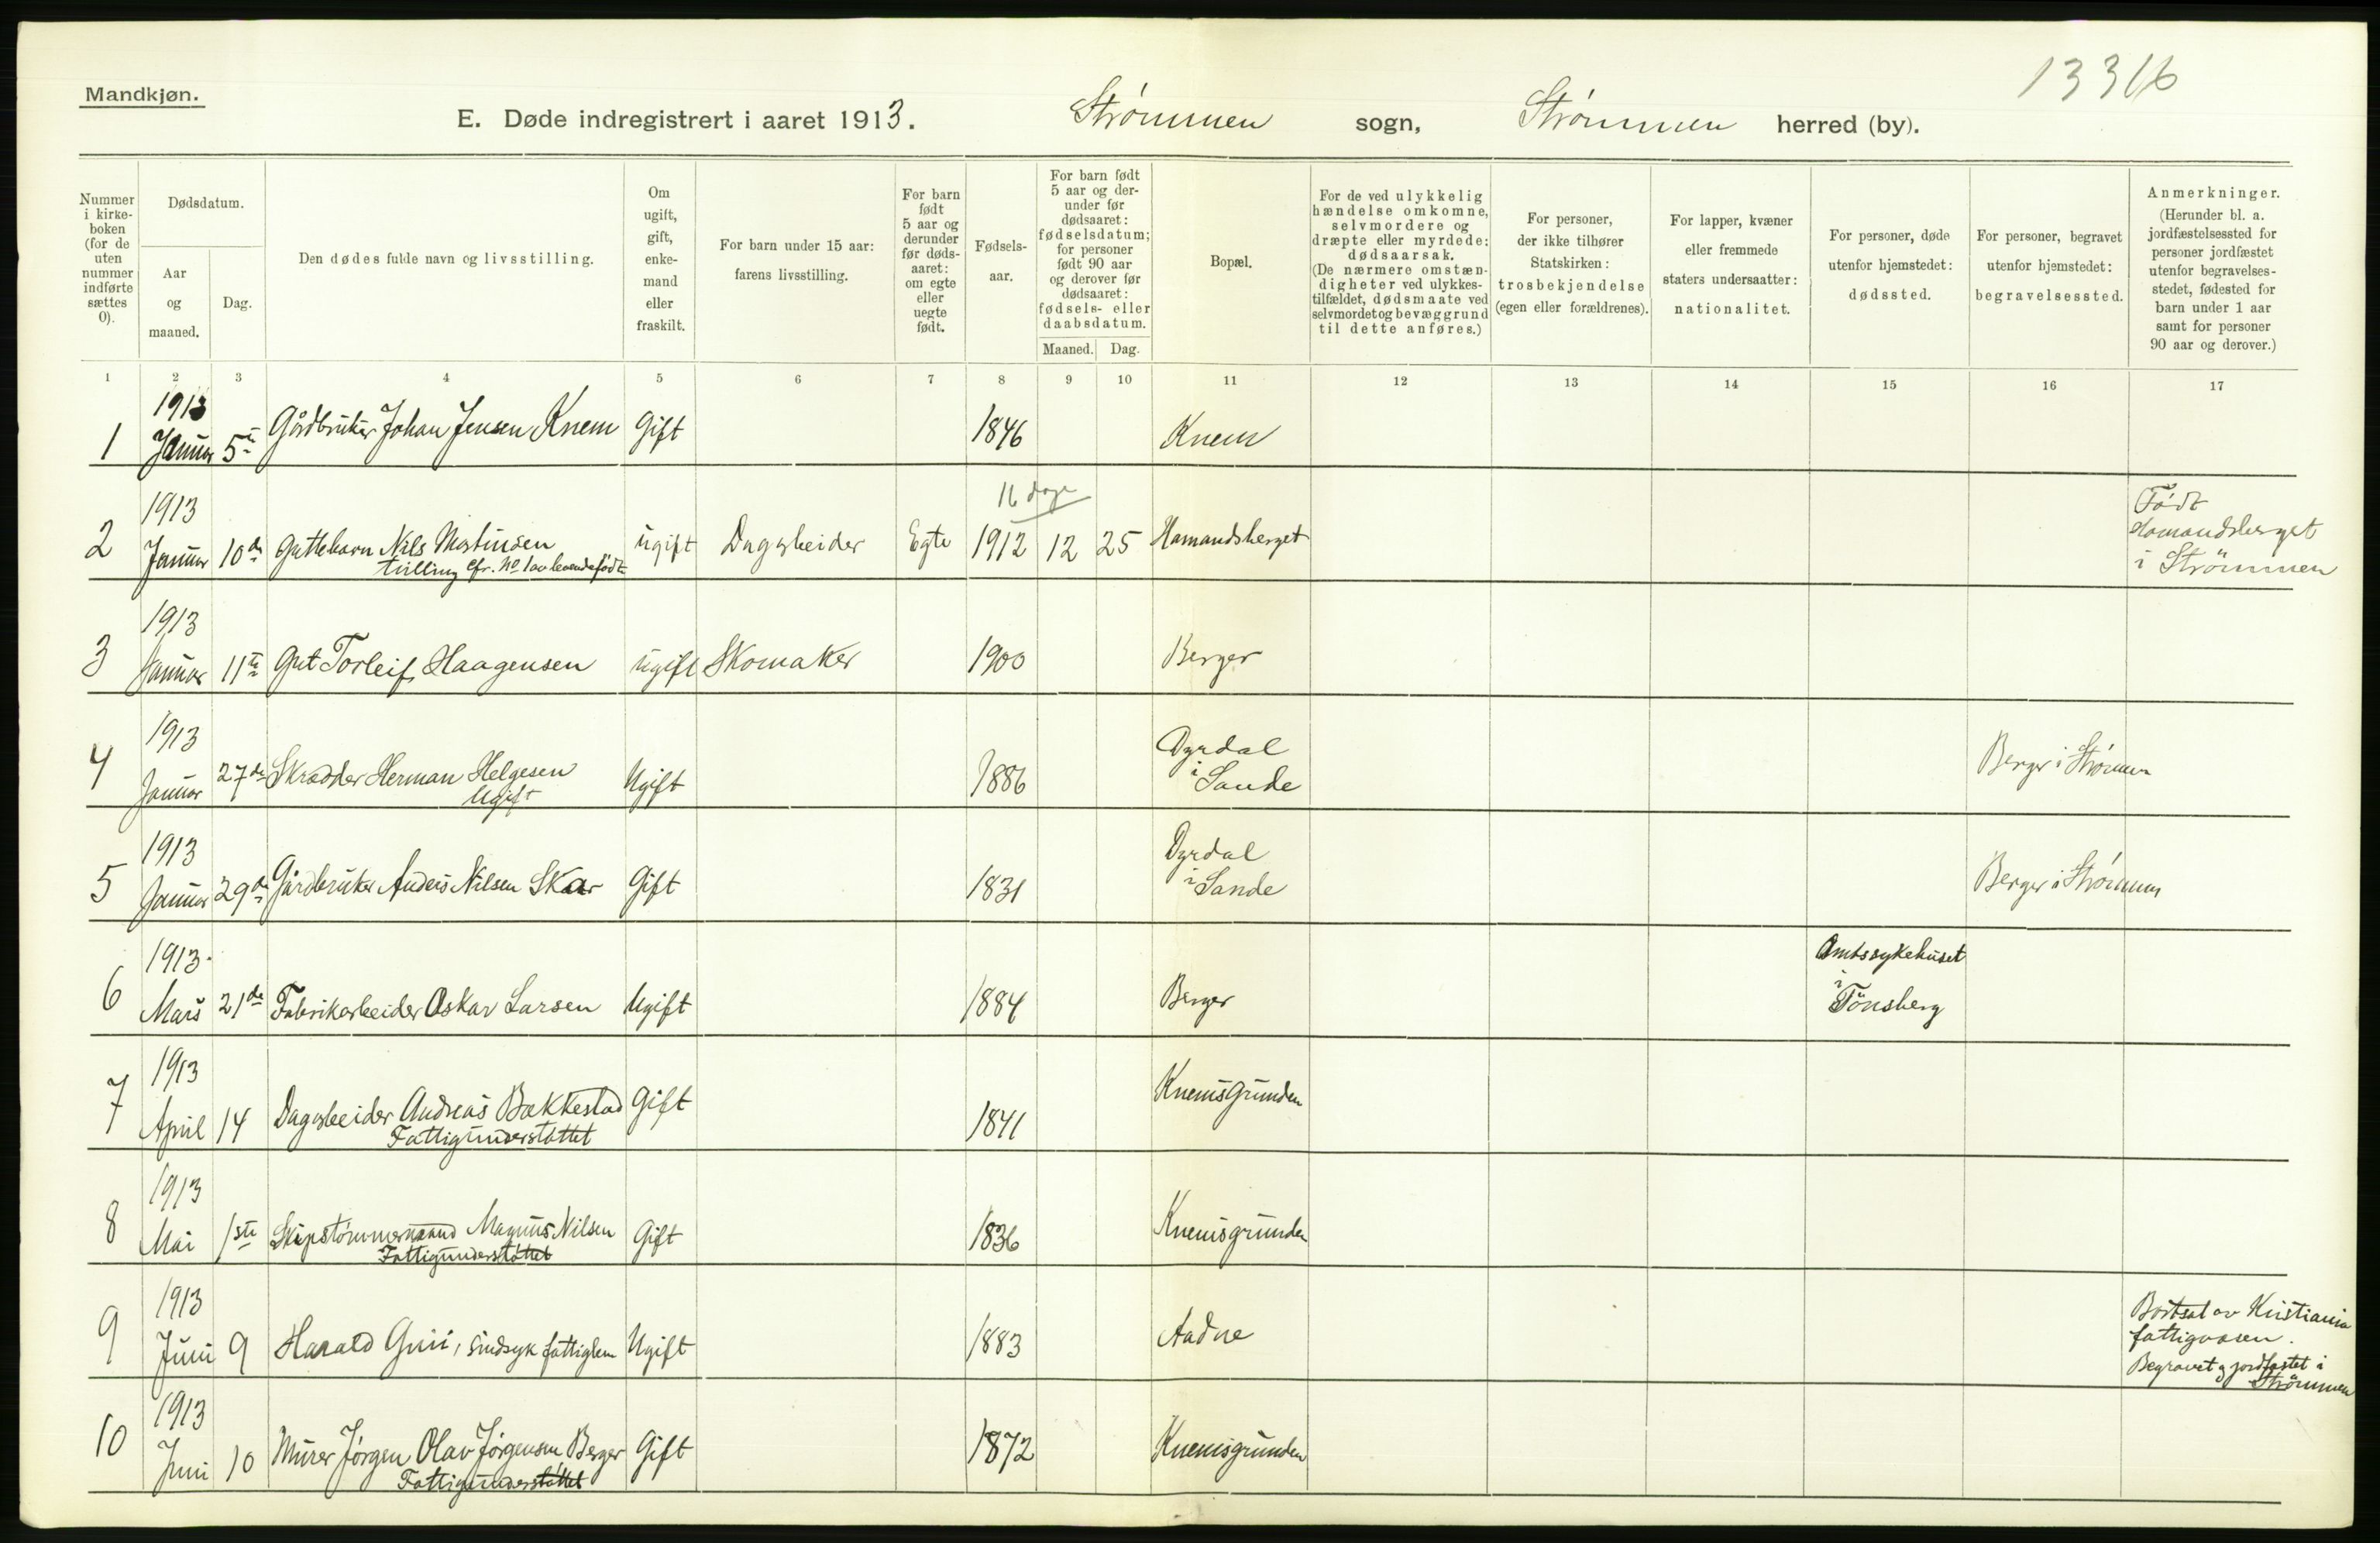 13316
Mandkjøn.
E. Døde indregistrert i aaret 1913. Strømmen sogn, Strømmen herred (by).
Nummer i kirkeboken (for de uten nummer indførte sættes 0).
Dødsdatum.
Aar og maaned.
Dag.
Den dødes fulde navn og livsstilling.
Om ugift, gift, enkemand eller fraskilt.
For barn under 15 aar: farens livsstilling.
For barn født 5 aar og derunder før dødsaaret: om egte eller uegte født.
Fødselsaar.
For barn født 5 aar og derunder før dødsaaret: fødselsdatum; for personer født 90 aar og derover før dødsaaret: fødsels- eller daabsdatum.
Maaned. Dag.
Bopæl.
For de ved ulykkelig hændelse omkomne, selvmordere og dræpte eller myrdede: dødsaarsak. (De nærmere omstændigheter ved ulykkestilfældet, dødsmaate ved selvmordet og bevæggrund til dette anføres.)
For personer, der ikke tilhører Statskirken: trosbekjendelse (egen eller forældrenes).
For lapper, kvæner eller fremmede staters undersaatter: nationalitet.
For personer, døde utenfor hjemstedet: dødssted.
For personer, begravet utenfor hjemstedet: begravelsessted.
Anmerkninger. (Herunder bl. a. jordfæstelsessted for personer jordfæstet utenfor begravelsesstedet, fødested for barn under 1 aar samt for personer 90 aar og derover.)
1 2 3 4 5 6 7 8 9 10 11 12 13 14 15 16 17
1 1913 Januar 5te Gårdbruker Johan Jensen Knem Gift 1846 Knem
2 1913 Januar 10de Guttebarn Nils Martinsen Ugift Dagarbeider Egte 1912 12 25 Hamandsberget
tvilling cfr. No 1 av levendefødte
16 dage
Født
Hamandsberget
i Strömmen
3 1913 Januar 11te Gut Torleif Haagensen Ugift Skomaker 1900 Berger
4 1913 Januar 27de Skrædder Herman Helgesen Ugift 1886 Dyrdal i Sande Berger i Strømmen
Ugift
5 1913 Januar 29de Gårdbruker Anders Nilsen Skar Gift 1831 Dyrdal i Sande Berger i Strømmen
6 1913 Mars 21de Fabrikarbeider Oskar Larsen Ugift 1884 Berger Amtssykehuset i Tönsberg
7 1913 April 14 Dagarbeider Andreas Bakkestad Gift 1841 Knemsgrunden
Fattigunderstøttet
8 1913 Mai 1ste Skipstömmermand Magnus Nilsen Gift 1836 Knemsgrunden
Fattigunderstøttet
9 1913 Juni 9 Harald sindsyk fattiglem Ugift 1883 Aadne
Bortsat av Kristiania
fattigvæsen.
Begravet og jordfæstet i
Strömmen
10 1913 Juni 10 Murer Jörgen Olav Jörgensen Berger Gift 1872 Knemsgrunden
Fattigunderstøttet